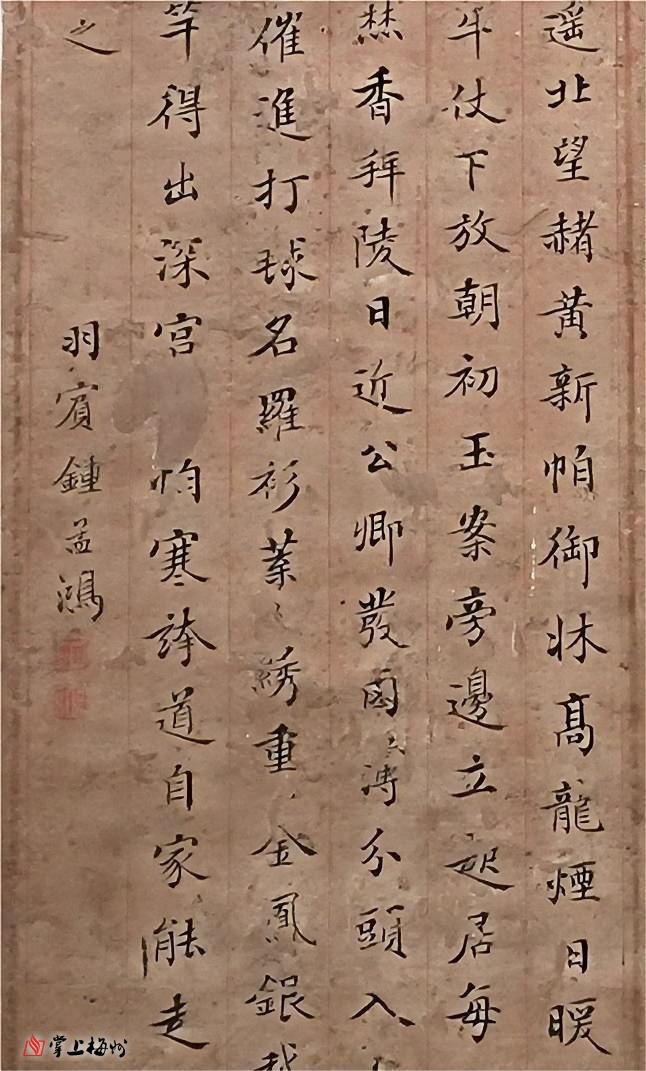 遥北望赭黄新帕御牀高龍煙日暖
牛仗下放朝初玉案旁邊立起居每
焚香拜陵日近公卿發鹵溥分頭入
催進打球名羅衫葉々綉重、金鳳銀
竿得出深宮怕寒誇道自家能走
之
羽賓鍾孟鴻
掌上梅州